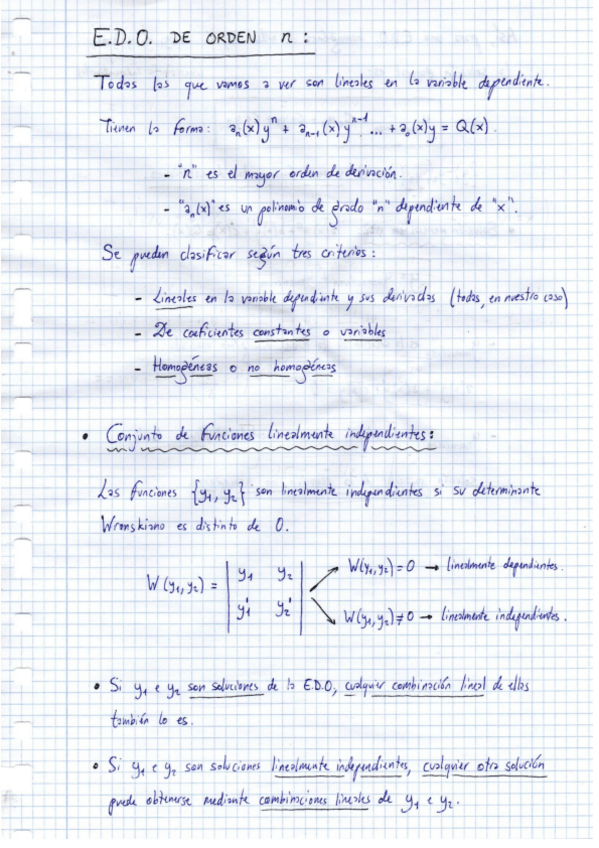 E.D.O. DE ORDEN n :
Todas las que vamos a ver son lineales en la variable dependiente.
Tienen la forma: aₙ(x)yⁿ + aₙ₋₁(x)yⁿ⁻¹ ... + a₀(x)y = Q(x).
- "n" es el mayor orden de derivación.
- "aₙ(x)" es un polinomio de grado "n" dependiente de "x".
Se pueden clasificar según tres criterios:
- Lineales en la variable dependiente y sus derivadas (todas, en nuestro caso)
- De coeficientes constantes o variables
- Homogéneas o no homogéneas
• Conjunto de funciones linealmente independientes:
Las funciones {y₁, y₂} son linealmente independientes si su determinante
Wronskiano es distinto de 0.
W(y₁,y₂) = | y₁ y₂ | W(y₁,y₂) = 0 → linealmente dependientes.
| y₁' y₂' | W(y₁,y₂) ≠ 0 → linealmente independientes.
• Si y₁ e y₂ son soluciones de la E.D.O, cualquier combinación lineal de ellas
también lo es.
• Si y₁ e y₂ son soluciones linealmente independientes, cualquier otra solución
puede obtenerse mediante combinaciones lineales de y₁ e y₂.